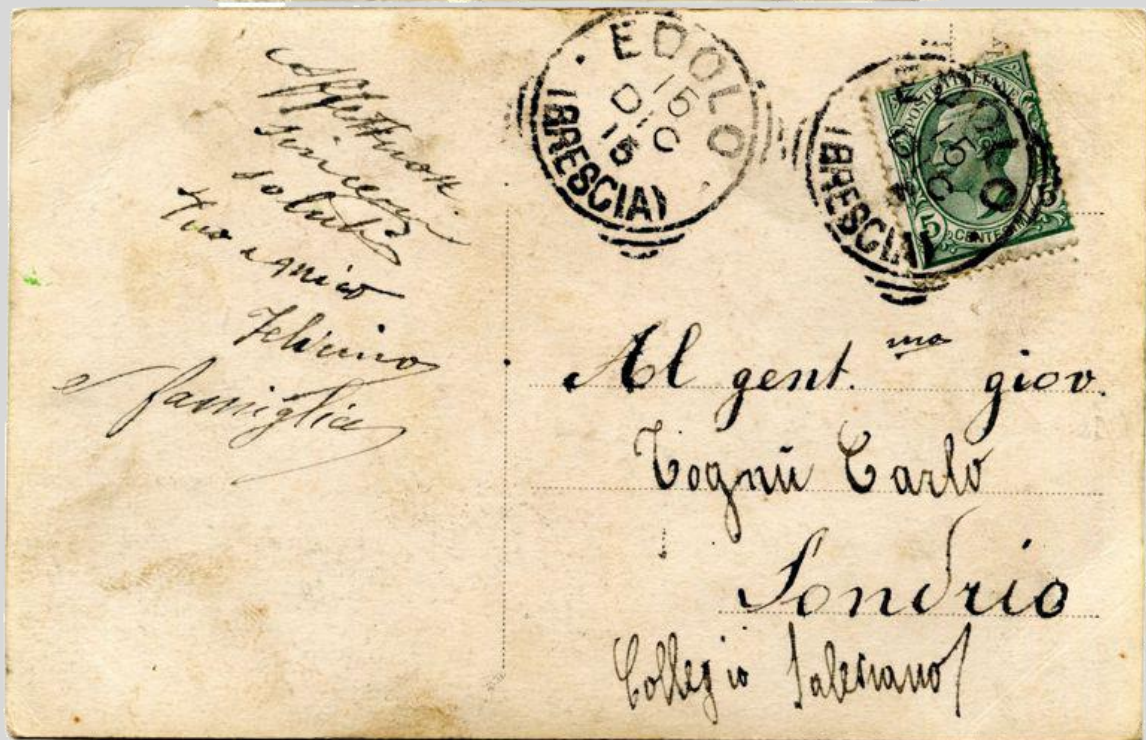 Affettuosi
sinceri
saluti
tuo amico
e famiglia
EDOLO
15
DIC
15
(BRESCIA)
EDOLO
15
(BRESCIA)
POSTE ITALIANE
5 CENTESIMI 5
Al gent.mo giov.
Tognù Carlo
Sondrio
Collegio Salesiano